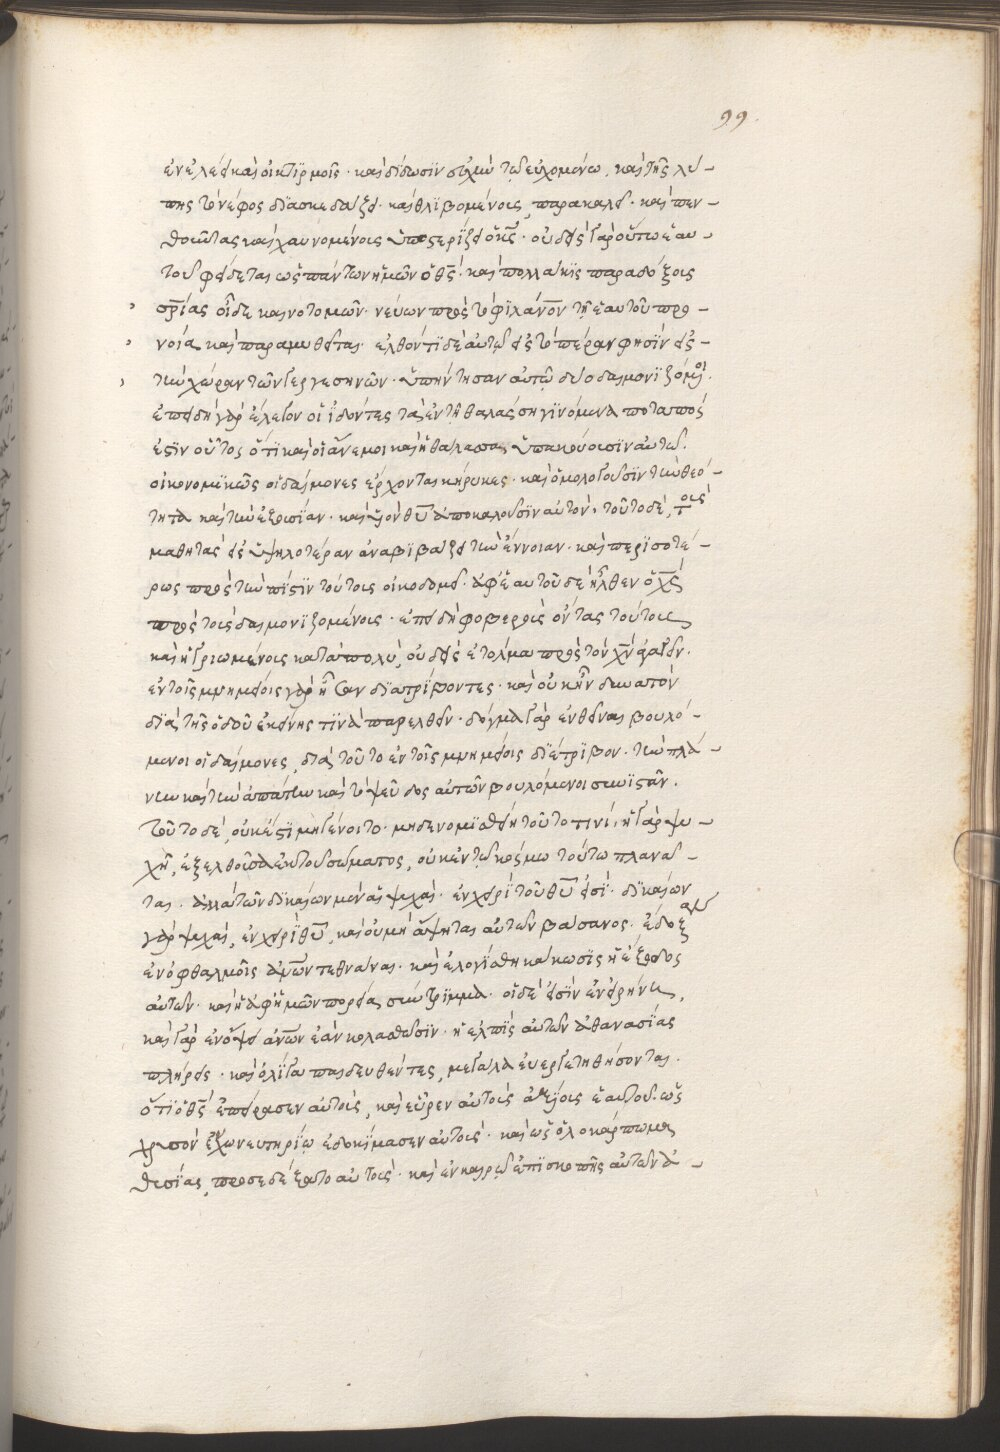 99.
ἐν ἐλέει καὶ οἰκτιρμοῖς· καὶ δίδωσιν εὐχὴν τῷ εὐχομένῳ, καὶ τῆς λύ–
πης τὸ νέφος διασκεδάζει· καὶ θλιβομένοις παρακαλεῖ· καὶ πεν–
θοῦντας καὶ χαυνομένοις ὑποστηρίζει ὁ κ̅ς̅· οὐδεὶς γὰρ οὕτω ἑαυ–
τοῦ φείδεται ὡς πάντων ἡμῶν ὁ θ̅ς̅· καὶ πολλάκις παραδόξοις
σ̅ρ̅ίας οἶδε καινοτομῶν· νεύων πρὸς τὸ φιλάν̅ο̅ν τῇ ἑαυτοῦ προ–
νοίᾳ καὶ παραμυθεῖται· ἐλθόντι δὲ αὐτῷ εἰς τὸ πέραν φησὶν εἰς–
τὴν χώραν τῶν γεργεσηνῶν· ὑπήντησαν αὐτῷ δύο δαιμονιζόμ̅οι̅·
ἐπειδὴ γὰρ ἔλεγον οἱ ἰδόντες τὰ ἐν τῇ θαλάσσῃ γινόμενα ποταπός
ἐστιν οὗτος ὅτι καὶ οἱ ἄνεμοι καὶ ἡ θάλασσα, ὑπακούουσιν αὐτῷ·
οἰκονομικῶς οἱ δαίμονες ἔρχονται κήρυκες· καὶ ὁμολογοῦσιν τὴν θεό–
τητα καὶ τὴν ἐξουσίαν· καὶ υἱὸν θ̅υ̅ ἀποκαλοῦσιν αὐτόν· τοῦτο δὲ, τοὺς
μαθητὰς εἰς ὑψηλοτέραν ἀναβιβάζει τὴν ἔννοιαν· καὶ περισοτέ–
ρως πρὸς τὴν πίστιν τούτοις οἰκοδομεῖ· ἀφ' ἑαυτοῦ δὲ ἦλθεν ὁ χ̅ς̅
πρὸς τοὺς δαιμονιζομένοις· ἐπειδὴ φοβεροὺς ὄντας τούτοις
καὶ ἠγριωμένοις κατὰ πολύ, οὐδεὶς ἐτόλμα πρὸς τὸν χ̅ν̅ ἀγαγεῖν·
ἐν τοῖς μνημείοις γὰρ ἦσαν διατρίβοντες· καὶ οὐκ ἦν δυνατὸν
διὰ τῆς ὁδοῦ ἐκείνης τινὰ παρελθεῖν· δόγμα γὰρ ἐνθεῖναι βουλό–
μενοι οἱ δαίμονες, διὰ τοῦτο ἐν τοῖς μνημείοις διέτριβον· τὴν πλά–
νην καὶ τὴν ἀπάτην καὶ τὸ ψεῦδος αὐτῶν βουλόμενοι συνιστᾶν·
τοῦτο δὲ, οὐκ ἔστι μὴ γένοιτο· μηδὲ νομισθείη τοῦτο τινί· ἡ γὰρ ψυ–
χὴ, ἐξελθοῦσα ἐκ τοῦ σώματος, οὐκ ἐν τῷ κόσμῳ τούτῳ πλανᾶ–
ται· ἀλλὰ τῶν δικαίων μὲν αἱ ψυχαὶ· ἐν χειρὶ τοῦ θ̅υ̅ εἰσί· δικαίων
γὰρ ψυχαὶ, ἐν χειρὶ θ̅υ̅, καὶ οὐ μὴ ἅψηται αὐτῶν βάσανος· ἔδοξαν
ἐν ὀφθαλμοῖς ἀ̅ν̅ω̅ν τεθνάναι· καὶ ἐλογίσθη κάκωσις ἡ ἔξοδος
αὐτῶν· καὶ ἡ ἀφ' ἡμῶν πορεία σύντριμμα· οἱ δέ εἰσιν ἐν εἰρήνῃ,
καὶ γὰρ ἐν ὄψει ἀ̅ν̅ω̅ν ἐὰν κολασθῶσιν· ἡ ἐλπὶς αὐτῶν ἀθανασίας
πλήρης· καὶ ὀλίγα παιδευθέντες, μεγάλα εὐεργετηθήσονται·
ὅτι ὁ θ̅ς̅ ἐπείρασεν αὐτοὺς, καὶ εὗρεν αὐτοὺς ἀξίοις ἑαυτοῦ· ὡς
χρυσὸν ἐν χωνευτηρίῳ ἐδοκίμασεν αὐτοὺς· καὶ ὡς ὁλοκάρπωμα
θυσίας, προσεδέξατο αὐτοὺς· καὶ ἐν καιρῷ ἐπισκοπῆς αὐτῶν ἀ–